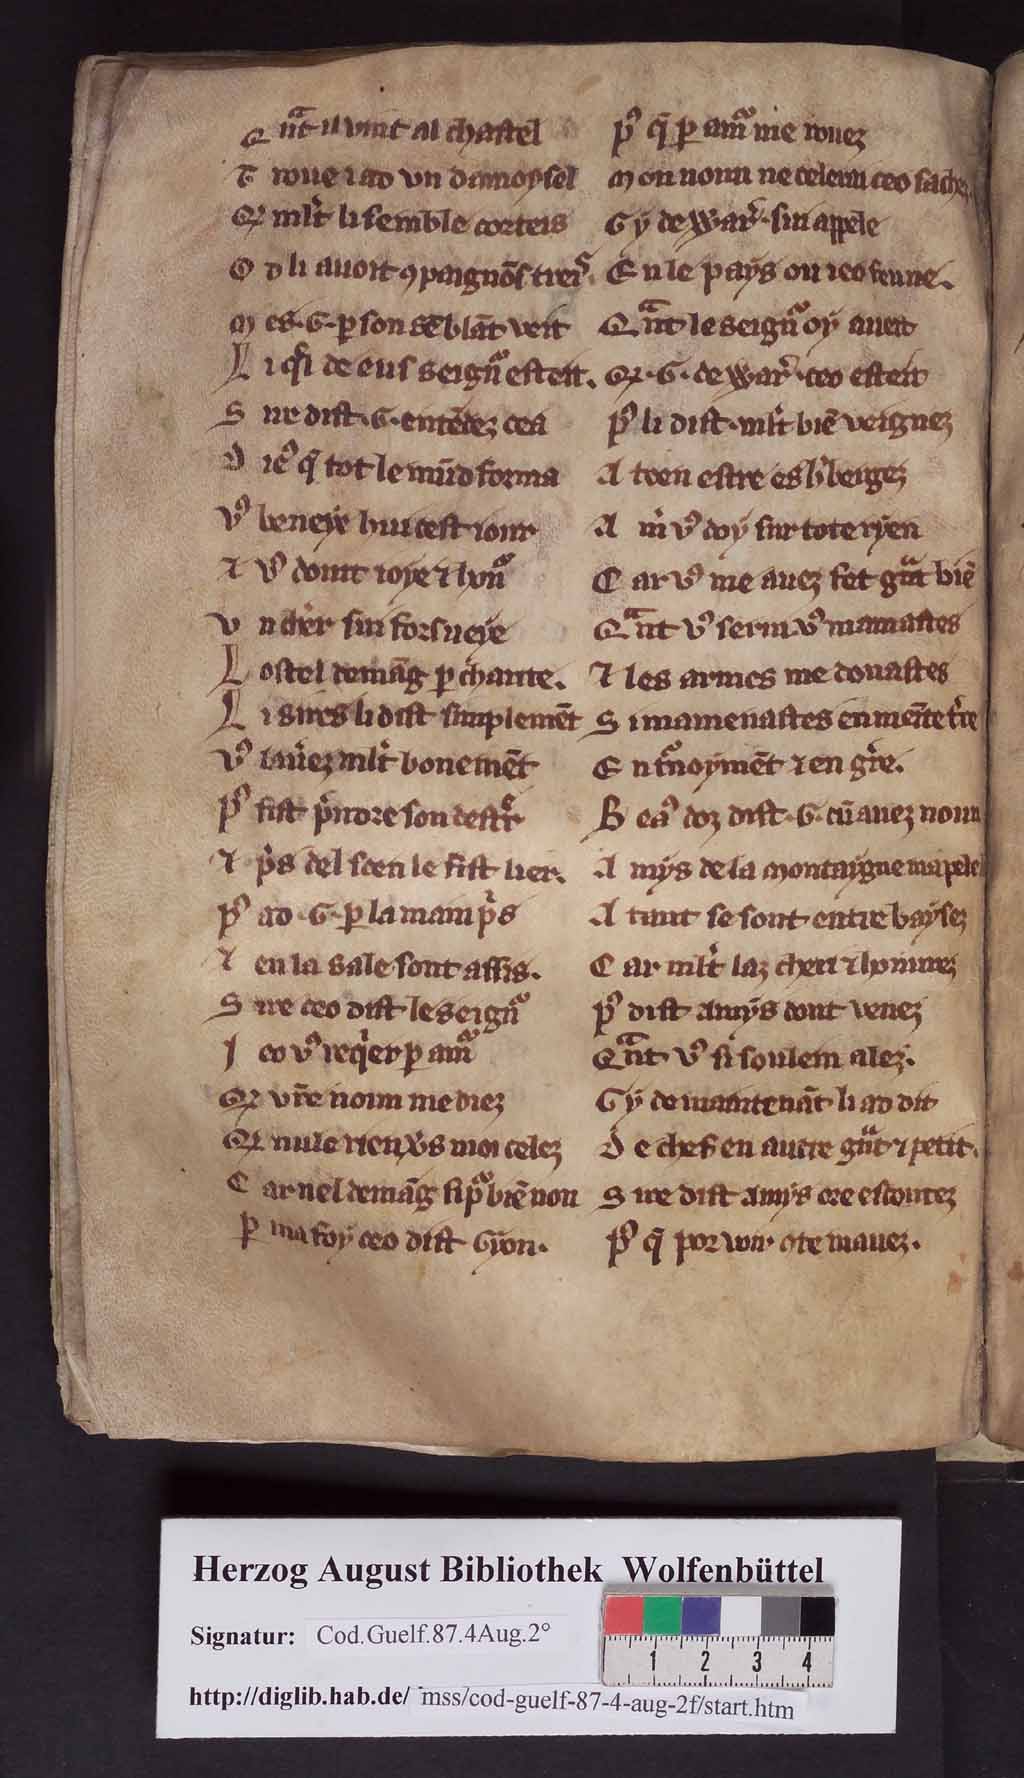 Qant il vint al chastel
Troue i ad vn damoysel
Qe mlt li semble corteis
Od li auoit 9paignōs treis
Mes .G. p son sēblāt veit
Li q̄l de eus seign᷑ esteit.
Sire dist .G. entēdez cea
Dieꝰ q̄ tot le mūd forma
Vꝰ beneye hui cest iour
⁊ vꝰ doint ioye ⁊ hon᷑
Vn cheꝛ sui forsueye
Lostel demāg p charite.
Li sires li dist simplemēt
Vꝰ lauez mlt bonemēt
Pꝰ fist p̄ndre son destr
⁊ p̄s del soen le fist lier.
Pꝰ ad .G. p la main p̄s
⁊ en la sale sont assis.
Sire ceo dist le seign᷑
Jeo vꝰ req̄er p am᷑
Qe vr̄e noun me diez
Qe nule rien v̄s moi celez
Car nel demāg si p᷑ biē non
P ma foy ceo dist Gyon.
Pꝰ q̄ p am᷑ me rouez
Mon noun ne celerai ceo sachez
Gy de War̄. sui appele
En le pays ou ieo fu ne.
Qant le seign᷑ oy aueit
Qe .G. de War̄. ceo esteit
Pꝰ li dist. mlt biē veignez
A toen estre es h̄bergez
Am̄ vꝰ doy sur tote ryen
Car vꝰ me auez fet gāt biē
Qant vꝰ serui. vꝰ mamastes
⁊ les armes me donastes
Si mamenastes en meīte t̄re
En t᷑noymēt ⁊ en gr̄e.
Beaꝰ doz dist .G. cū auez noun
Amys de la Montaygne map̄ele
A tant se sont entre baysez
Car mlt laz cheri ⁊ honurez
Pꝰ dist Amys dont venez
Qant vꝰ si soulem alez.
Gy de maintenāt li ad dit
De chef en autre gāt ⁊ petit.
Sire dist Amys ore escoutez
Pꝰ q̄ por voir ote mauez.
Herzog August Bibliothek Wolfenbüttel
Signatur: Cod.Guelf.87.4Aug.2°
1 2 3 4
http://diglib.hab.de/ mss/cod-guelf-87-4-aug-2f/start.htm